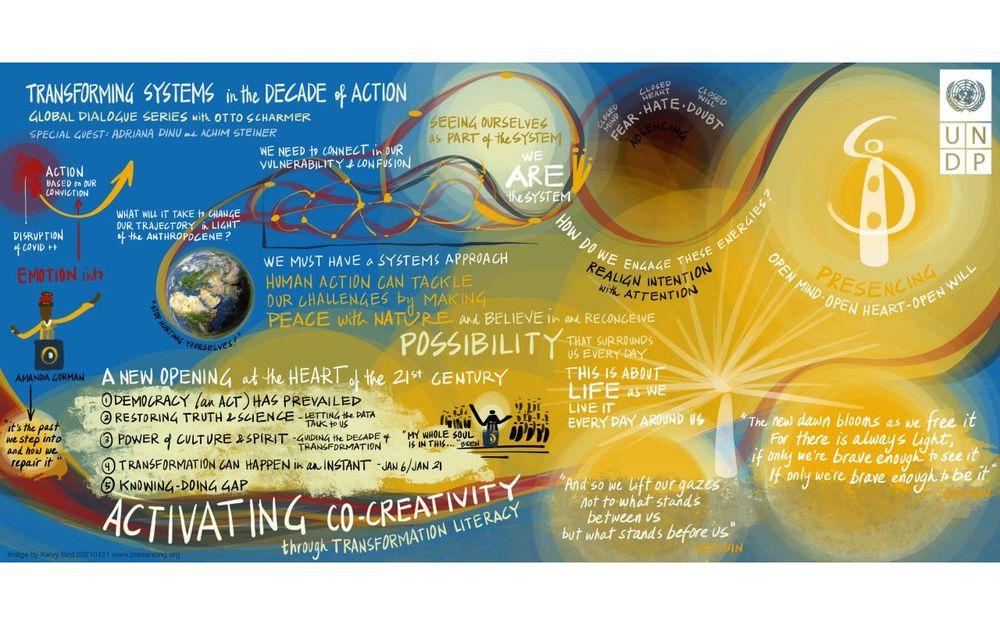 TRANSFORMING SYSTEMS in the DECADE of ACTION
GLOBAL DIALOGUE SERIES with OTTO SCHARMER
SPECIAL GUEST: ADRIANA DINU and ACHIM STEINER
ACTION
BASED on OUR
CONVICTION
DISRUPTION
of COVID ++
EMOTION into
AMANDA GORMAN
"it's the past
we step into
and how we
repair it"
WE NEED to CONNECT in OUR
VULNERABILITY & CONFUSION
WHAT WILL IT TAKE to CHANGE
OUR TRAJECTORY in LIGHT
of the ANTHROPOCENE?
"STOP HURTING YOURSELVES!"
SEEING OURSELVES
as PART of the SYSTEM
WE
ARE
the SYSTEM
CLOSED
MIND
CLOSED
HEART
CLOSED
WILL
FEAR·HATE·DOUBT
ABSENCING
HOW DO WE ENGAGE THESE ENERGIES?
REALIGN INTENTION
with ATTENTION
UN
DP
PRESENCING
OPEN MIND-OPEN HEART-OPEN WILL
WE MUST HAVE a SYSTEMS APPROACH
HUMAN ACTION CAN TACKLE
OUR CHALLENGES by MAKING
PEACE with NATURE and BELIEVE in and RECONCEIVE
POSSIBILITY THAT SURROUNDS
US EVERY DAY
THIS IS ABOUT
LIFE as WE
LIVE IT
EVERY DAY AROUND US
A NEW OPENING at the HEART of the 21ST CENTURY
① DEMOCRACY (an ACT) HAS PREVAILED
② RESTORING TRUTH & SCIENCE - LETTING the DATA
TALK to US
③ POWER of CULTURE & SPIRIT - GUIDING the DECADE of
TRANSFORMATION
④ TRANSFORMATION CAN HAPPEN in an INSTANT - JAN 6/JAN 21
⑤ KNOWING-DOING GAP
"MY WHOLE SOUL
IS IN THIS..."
ACTIVATING CO-CREATIVITY
through TRANSFORMATION LITERACY
"And so we lift our gazes
not to what stands
between us
but what stands before us"
GORMAN
"The new dawn blooms as we free it
For there is always light,
if only we're brave enough to see it
If only we're brave enough to be it"
GORMAN
Image by Kelvy Bird 20210121 www.presencing.org